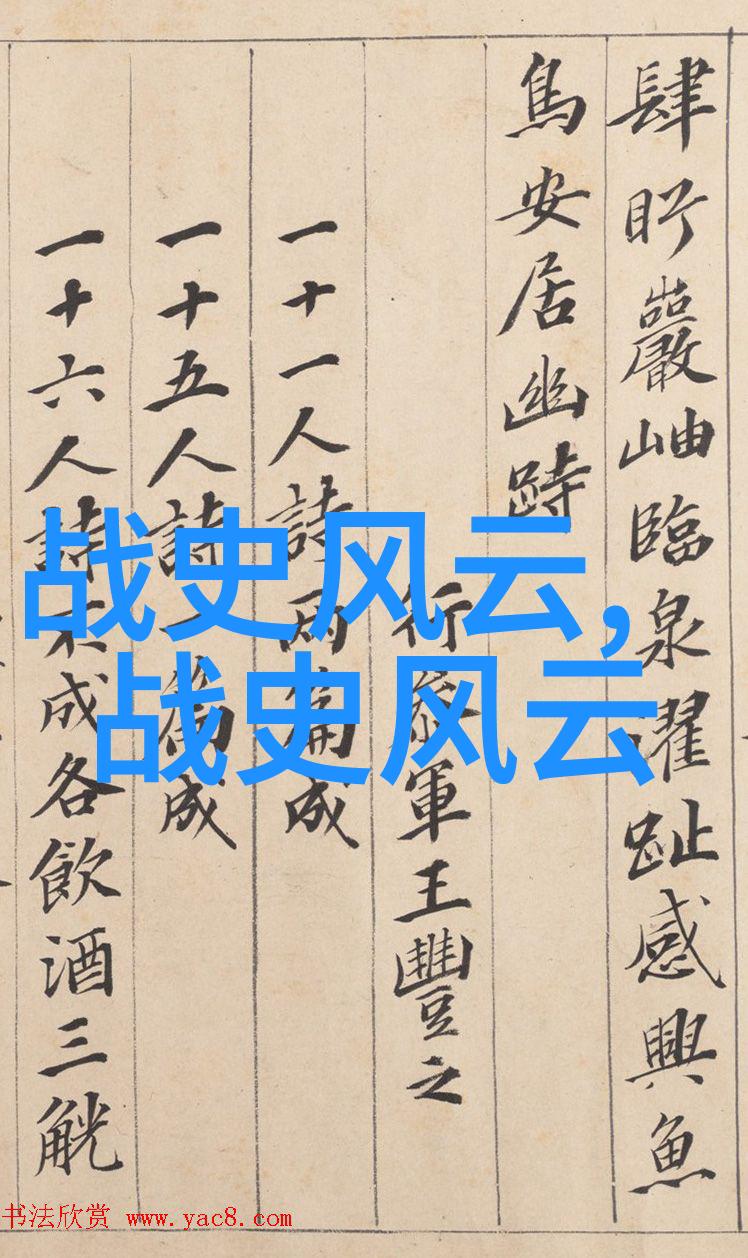 肆盱巖岫臨泉濯趾感興魚
鳥安居幽跱
行參軍王豐之
一十一人詩兩篇成
一十五人詩一篇成
一十六人詩不成各飲酒三觥
战史风云,
战史风云
书法欣赏 www.yac8.com